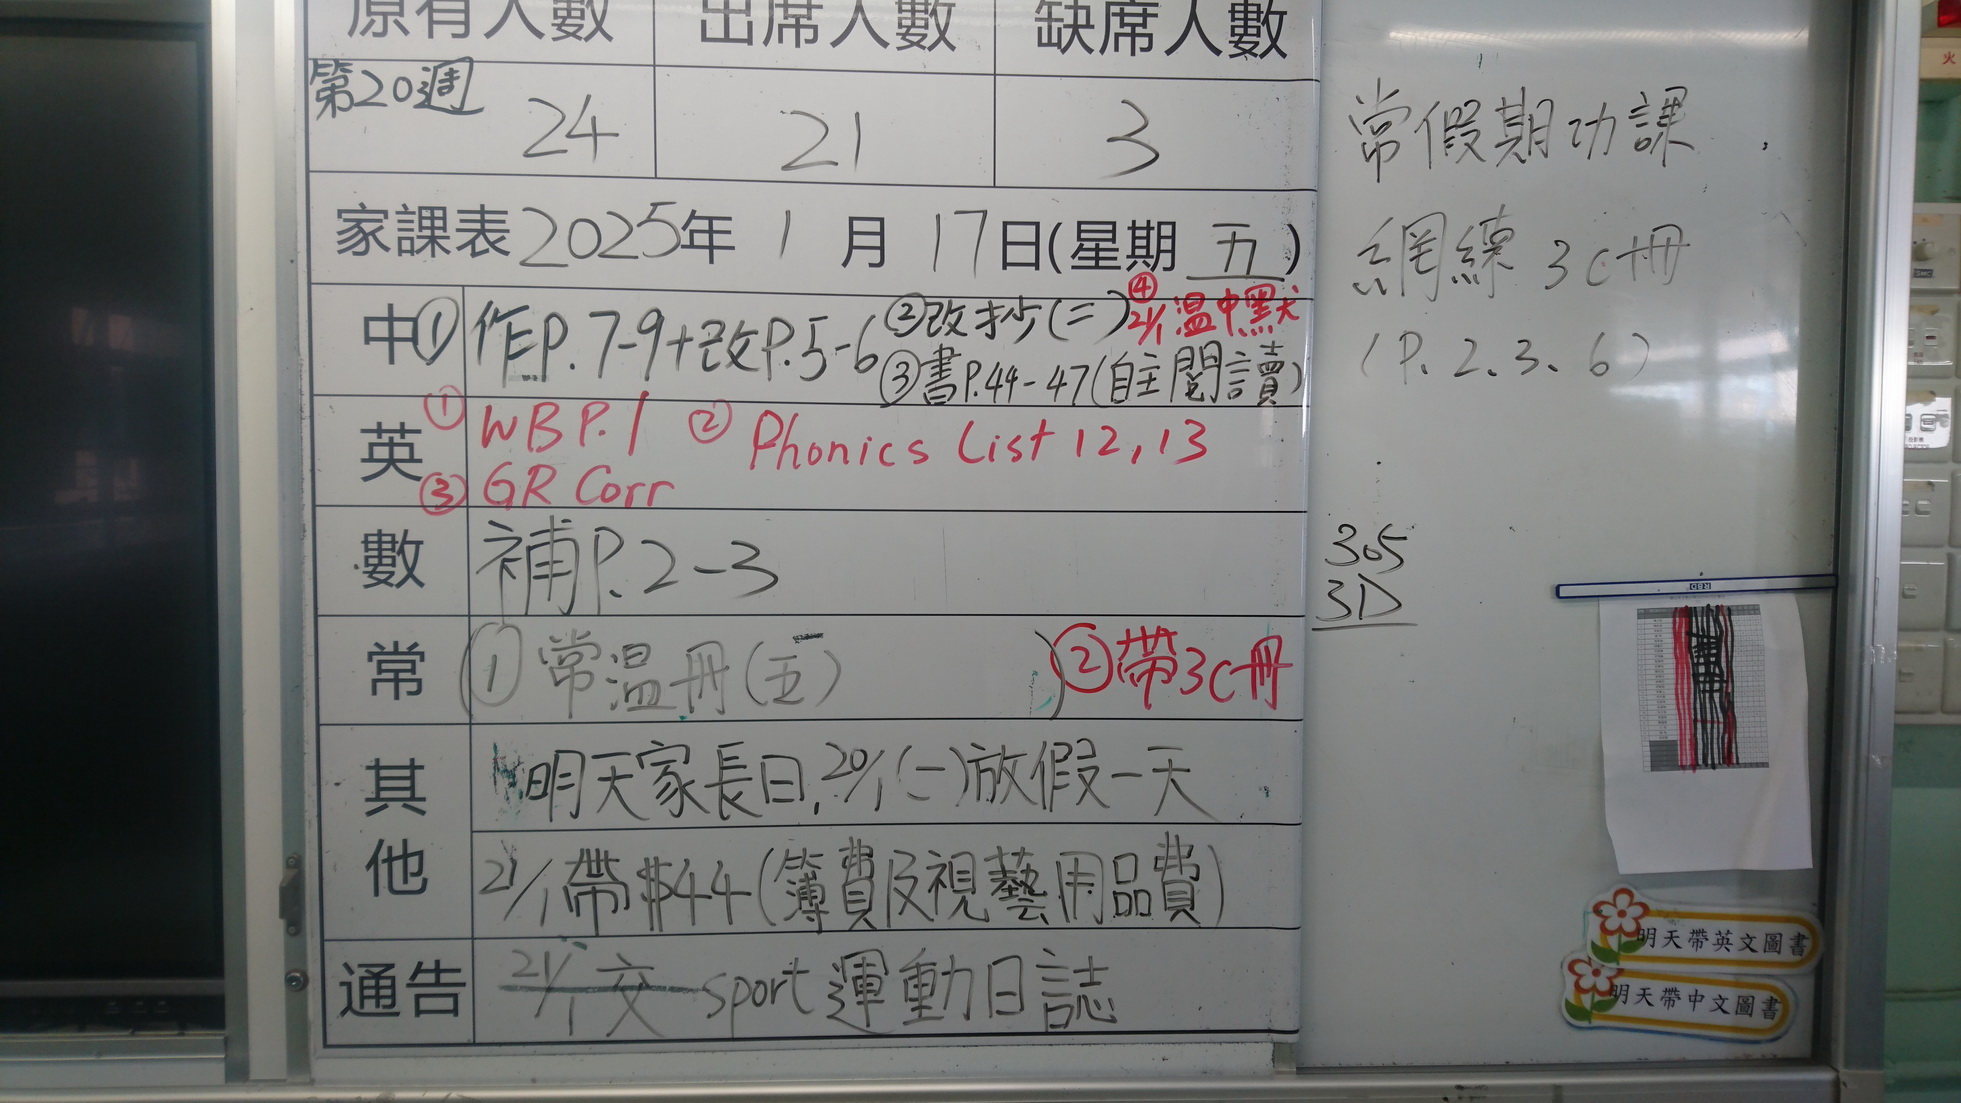 原有人數 出席人數 缺席人數
第20週 24 21 3
家課表2025年 1 月 17日(星期 五)
中 ①作P.7-9+改P.5-6 ②改抄(二) ④21/1溫中默
③書P.44-47(自主閱讀)
英 ①WB P.1 ② Phonics List 12,13
③ GR Corr
數 補P.2-3
常 ①常溫冊(五) ②帶3C冊
其他 明天家長日,20/1(一)放假一天
21/1帶$44(簿費及視藝用品費)
通告 21/1 交 sport運動日誌
常假期功課
網練 3C冊
(P.2、3、6)
305
3D
明天帶英文圖書
明天帶中文圖書
火